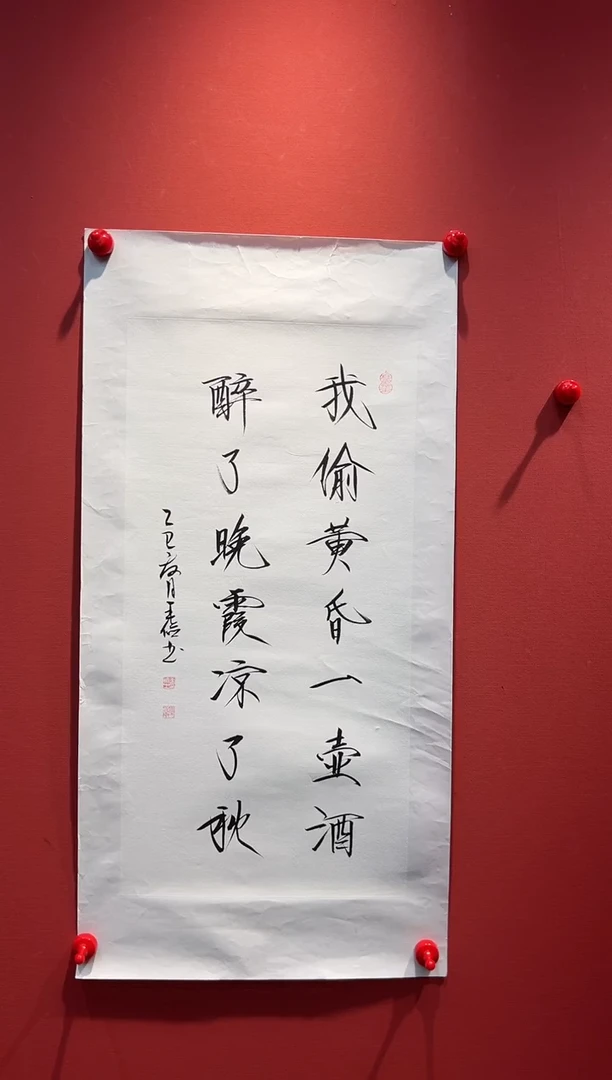 我偷黄昏一壶酒
醉了晚霞凉了秋
乙巳夏月王信书